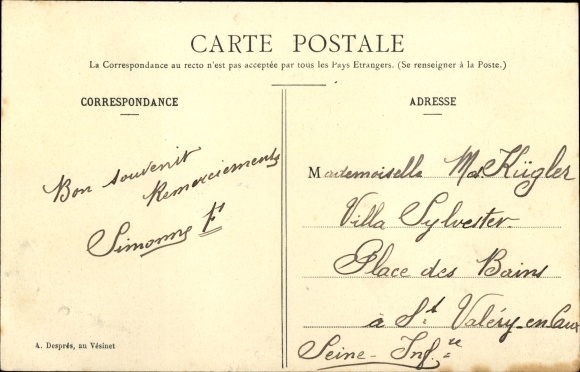 CARTE POSTALE
La Correspondance au recto n'est pas acceptée par tous les Pays Etrangers. (Se renseigner à la Poste.)
CORRESPONDANCE
Bon souvenir
Remerciements
Simonne F
ADRESSE
Mademoiselle Md. Kügler
Villa Sylvester
Place des Bains
à St Valéry-en-Caux
Seine-Infre
A. Després, au Vésinet